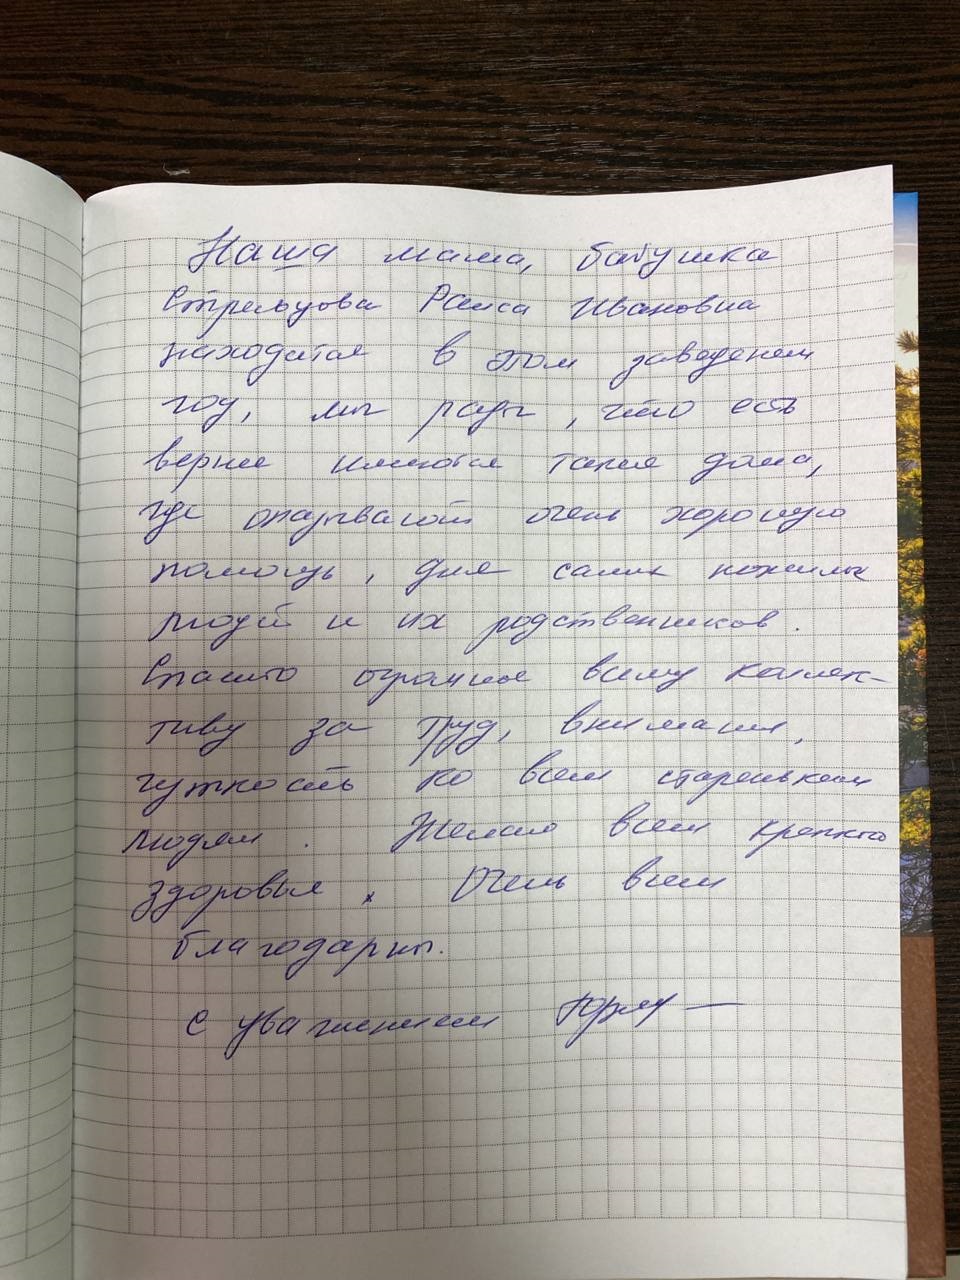 Наша мама, бабушка
Стрельцова Раиса Ивановна
находится в этом заведении
год, мы рады, что есть
вернее имеются такие дома,
где оказывают очень хорошую
помощь, для самих пожилых
людей и их родственников.
Спасибо огромное всему коллек-
тиву за труд, внимания,
чуткость ко всем стареньким
людям. Желаю всем крепкого
здоровья. Очень всем
благодарны.
С уважением